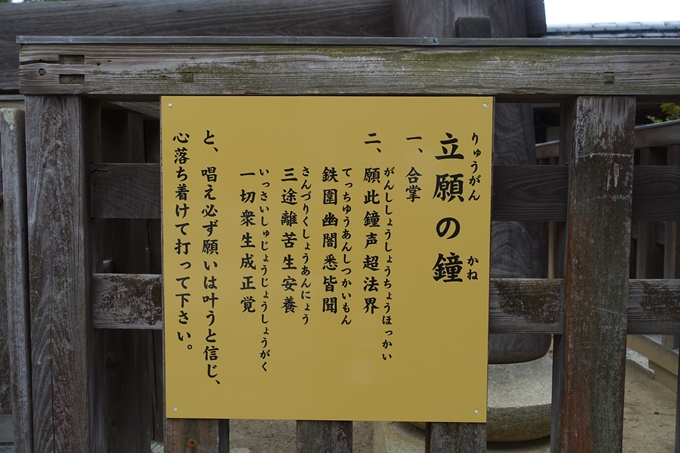 りゅうがん かね
立願の鐘
一、合掌
がんししょうしょうちょうほっかい
二、願此鐘声超法界
てっちゆうあんしつかいもん
鉄囲幽闇悉皆聞
さんづりくしょうあんにょう
三途離苦生安養
いっさいしゅじょうじょうしょうがく
一切衆生成正覚
と、唱え必ず願いは叶うと信じ、
心落ち着けて打って下さい。